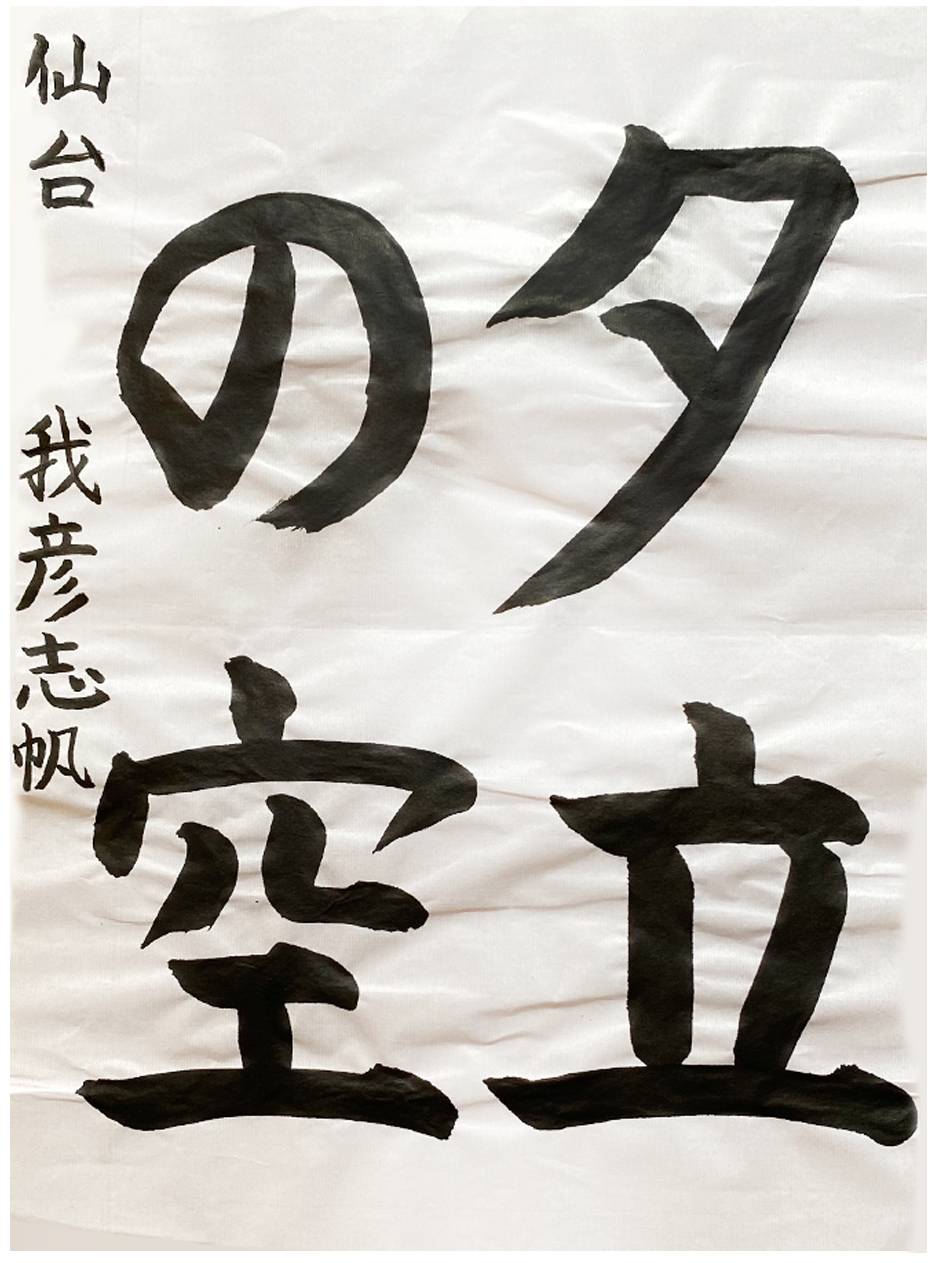 夕立
の空
仙台 我彦志帆